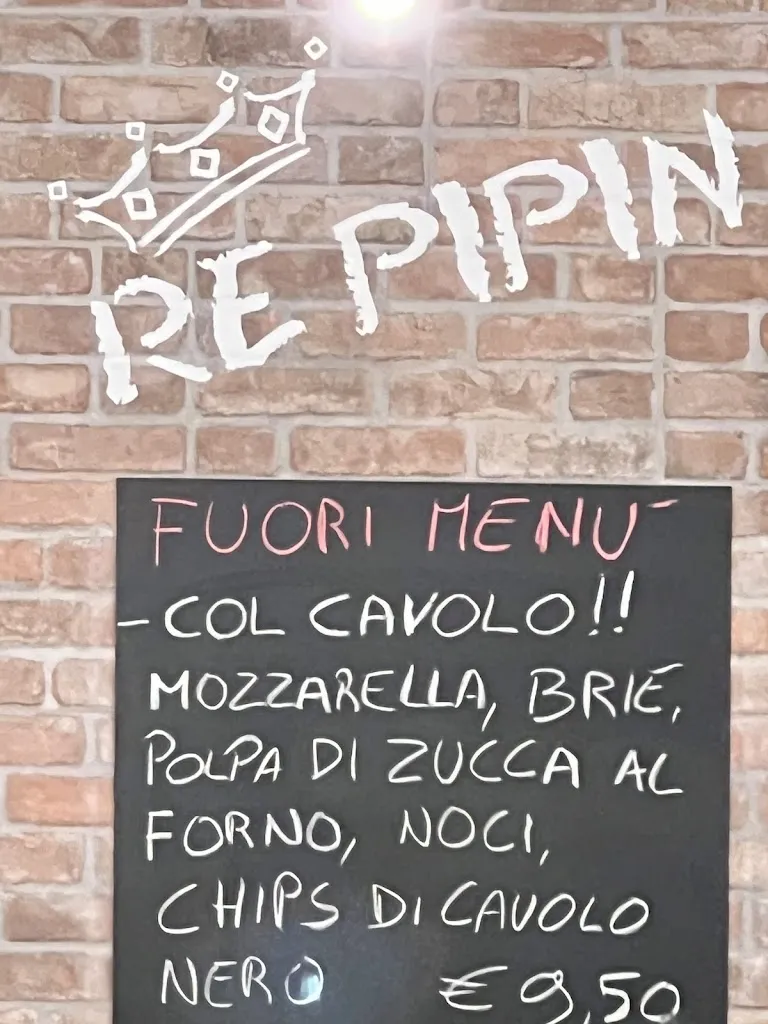 RE PIPIN
FUORI MENU'
- COL CAVOLO!!
MOZZARELLA, BRIE,
POLPA DI ZUCCA AL
FORNO, NOCI,
CHIPS DI CAVOLO
NERO € 9,50